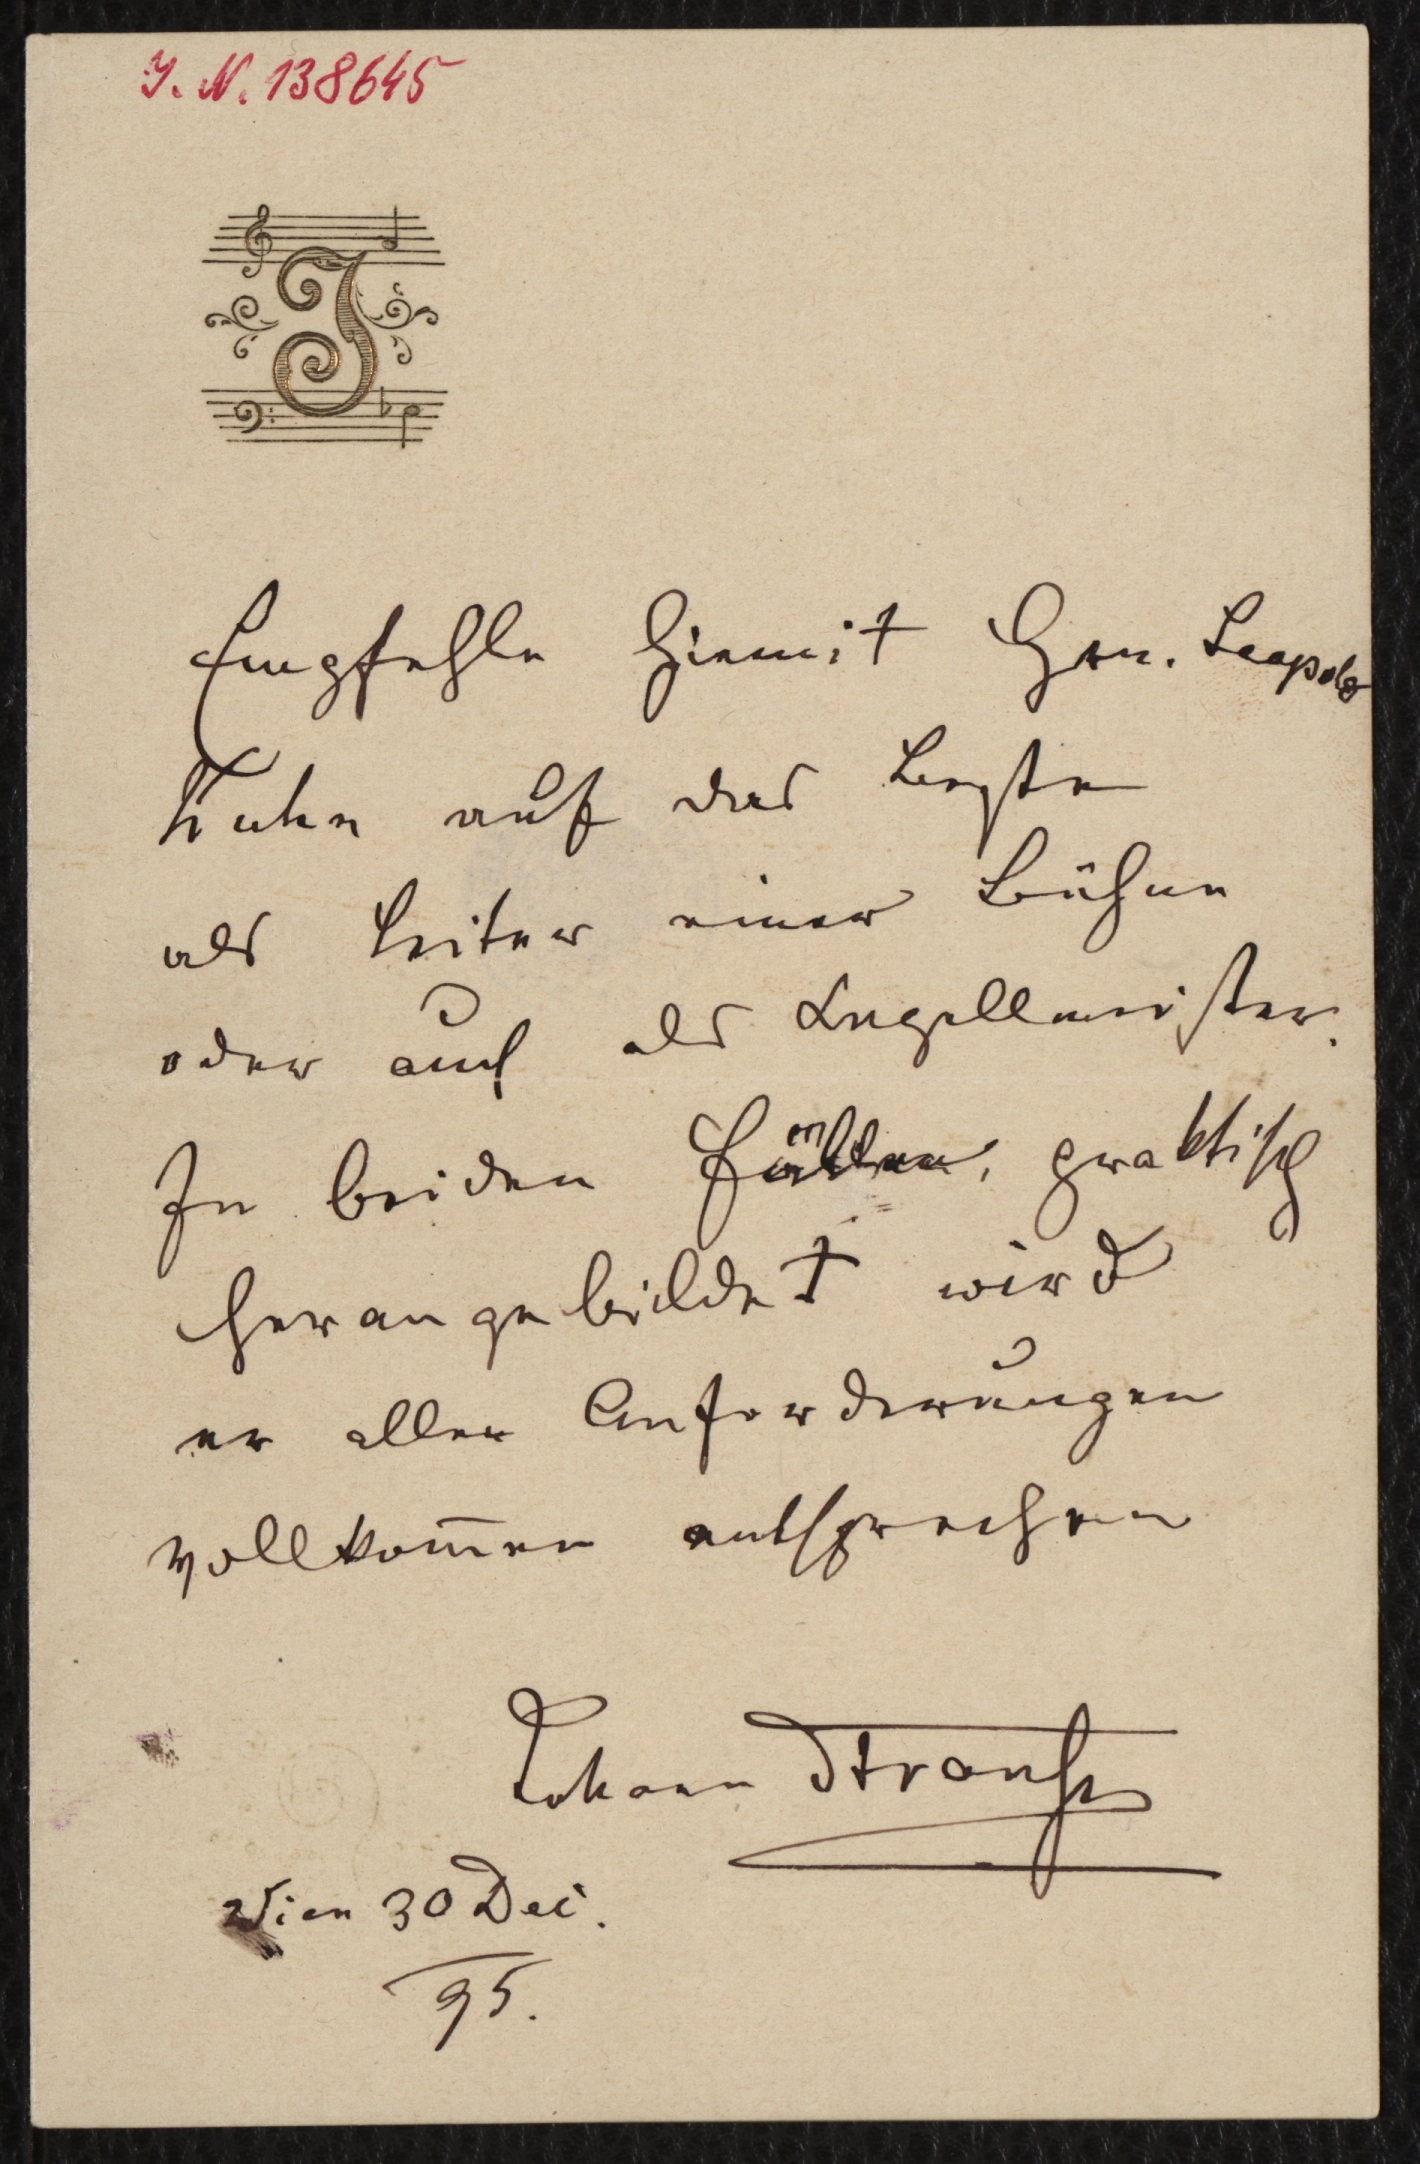 J. N. 138645
Empfehle hiemit Hrn. Leopold
Kuhn auf das Beste
als Leiter einer Bühne
oder auch als Kapellmeister.
In beiden Fächern, praktisch
herangebildet wird
er allen Anforderungen
vollkom̅en entsprechen
Johann Strauss
Wien 30 Dec.
95.